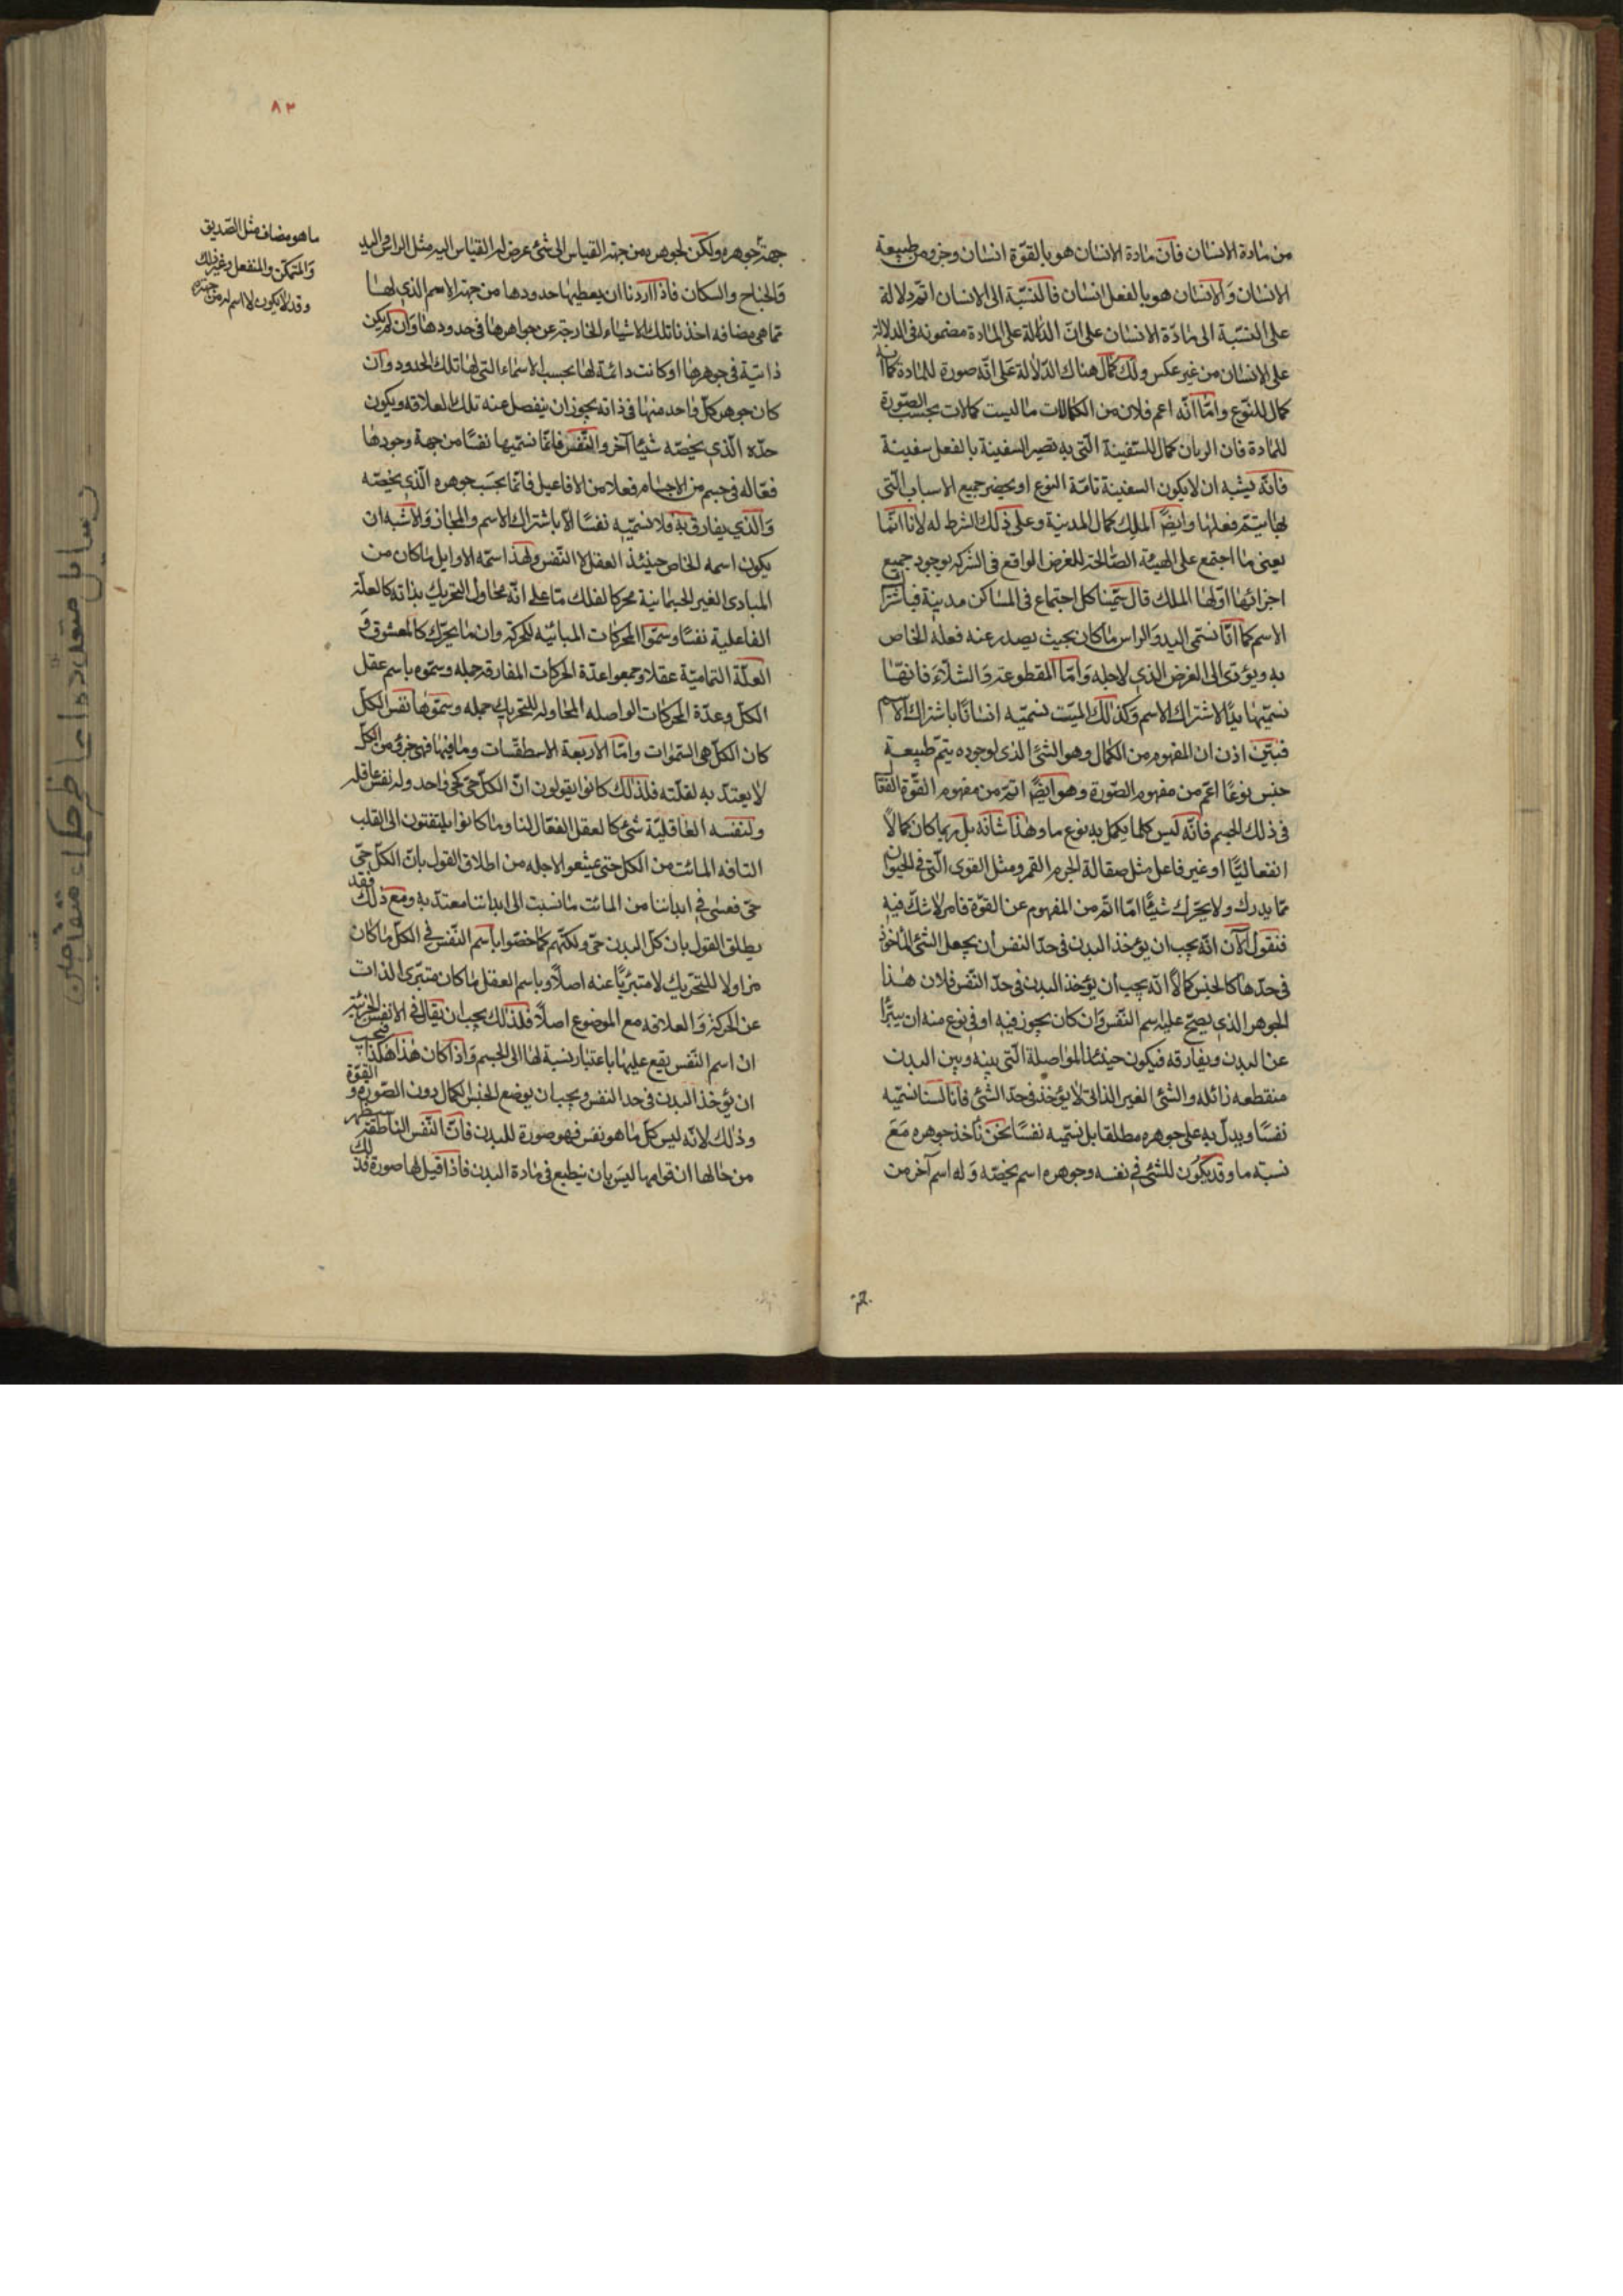 من مادة الانسان فان مادة الانسان هو بالقوّة انسان وجزو من طبيعة
الانسان وَالانسان هو بالفعل انسان فالنسبة الى الانسان اتم دلالة
على النسبة الى مادّة الانسان على انّ الدلالة على المادة مضمونه فى الدلالة
على الانسان من غير عكس ولك كمال هناك الدّلالة على انّه صورة للمادة كما انه
كمال للنوع وامّا انّه اعم فلان من الكمالات ما ليست كمالات بحسب الصّورة
للمادة فان الربان كمال للسّفينة الّتى به تصير السفينة بالفعل سفينة
فانّه يشبه ان لايكون السفينة تامّة النوع او يحضر جميع الاسباب الّتى
بها يتمّ فعلها وايضًا الملك كمال المدينة وعلى ذلك الشرط له لانا انّما
يعنى ما اجتمع على الهيئة الصّالحة للغرض الواقع فى الشركه بوجود جميع
اجزائها اوّلها الملك قال سمّينا كل اجتماع فى المساكن مدينة فباشتراك
الاسم كما انّا نسمّى اليد وَالراس ما كان بحيث يصدر عنه فعله الخاص
به ويؤدّى الى الغرض الذى لاجله وَامّا المقطوعة وَالشلّاءَ فانمّا
نسمّيها يدًا لاشتراك الاسم وَكذلك الميّت نسمّيه انسانًا باشتراك الاسم
فبيّن اذن ان المفهوم من الكمال وهو الشئ الذى لوجوده يتمّ طبيعة
جنس نوعًا اعمّ من مفهوم الصّورة وهو ايضًا اتمّ من مفهوم القوّة
فى ذلك الجسم فانّه ليس كلما يكمل به نوع ما وهذا شانه بل ربما كان كمالاً
انفعاليًّا او غير فاعل مثل صقالة الجرم القمر ومثل القوى الّتى فى الحيوان
ممّا يدرك ولا يحرّك شيئًا امّا اتمّ من المفهوم عن القوّة فامر لا شكّ فيه
فنقول الآن انّه يجب ان يؤخذ البدن فى حدّ النفس أن يجعل الشئ المأخوذ
فى حدّها كالجنس كمالاً انّه يجب أن يؤخذ البدن فى حدّ النّفس فلان هذا
الجوهر الذى يصحّ عليه اسم النّفس وَان كان يجوز فيه او فى نوع منه ان يتبرّأ
عن البدن ويفارقه فيكون حينئذ المواصلة الّتى بينه وبين البدن
منقطعه زائله والشئ الغير الذاتى لا يؤخذ فى حدّ الشئ فانا لسنا نسمّيه
نفسًا ويدلّ به على جوهره مطلقا بل نسميه نفسًا نحن نأخذ جوهره مَعَ
نسبته ما وقد يكون للشئ فى نفسه وجوهره اسم يخصّه وَله اسم آخر من
٨٢
جهة جوهره ولكن لجوهره من جهة القياس الى شئ عرض له القياس اليه مثل الراس واليد
وَالجناح والسكان فاذا اردنا ان يعطيها حدودها من جهة الاسم الذى لهَا
تما هى مضافه اخذنا تلك الاشياء الخارجة عن جواهرها فى حدودها وَان لم يكن
ذاتيّة فى جوهرها او كانت دائمة لها بحسب الاسماء التى لها تلك الحدود وَان
كان جوهر كلّ واحد منها فى ذاته يجوز ان ينفصل عنه تلك العلاقه ويكون
حدّه الّذى يخصّه شيئا آخر والنّفس فانّما نسمّيها نفسًا من جهة وجودها
فعّاله فى جسم من الاجسام فعلا من الافاعيل فانّما بحسَب جوهره الّذى يخصّه
وَالّذى يفارق به فلا نسمّيه نفسًا الّا باشتراك الاسم والمجاز وَالاشبه ان
يكون اسمه الخاص حينئذ العقل لا النّفس ولهذا اسمّه الاوايل ما كان من
المبادى الغير الجسمانية محركا لفلك ممّا على انّه محاول التحريك بذاته كالعلّة
الفاعلية نفسًا وسمّوا المحركات المباينه للحركة وان ما يحرّك كالمعشوق وَ
العلّة التماميّة عقلا وجمعوا عدّة المحركات المفارقه جمله وسمّوه باسم عقل
الكلّ وعدّة المحركات الواصله المحاوله للتحريك جمله وسمّوها نفس الكلّ
كان الكلّ هى السّموات وامّا الاربعة الاسطقسات وما فيها فهى جزؤ من الكلّ
لا يعتدّ به لقلّته فلذلك كانوا يقولون انّ الكلّ حىّ كحىّ واحد وله نفس عاقله
ولنفسه العَاقليّة شئ كالعقل الفعّال لنا وما كانوا يلتفتون الى القلب
التافه المائت من الكل حتى عيشعوا لاجله من اطلاق القول بانّ الكلّ حىّ
حىّ فعسى فى ابداننا من المائت ما نسبت الى ابداننا معتدّ به ومع ذلك فقد
يطلق القول بان كلّ البدن حىّ ولكنّهم كما خصّوا باسم النّفس فى الكلّ ما كان
مزاولا للتحّريك لا متبرّيًا عنه اصلًا وباسم العقل ما كان متبرّى الذات
عن الحركة وَالعلاقه مع الموضوع اصلًا فلذلك يجب ان يقال فى الانفس الجزئية
ان اسم النّفس يقع عليها باعتبار نسبة لها الى الجسم وَاذا كان هذا هكذا فيجب
ان يؤخذ البدن فى حد النفس ويجب ان يوضع الجنس الكمال دون الصّورة و القوّة
وذلك لانّه ليس كلّ ما هو نفس فهو صورة للبدن فانّ النّفس الناطقة سيظهر
من حالها ان قوامها ليَس بان ينطبع فى مادة البدن فاذا قيل لها صورة فذلك
ما هو مضاف مثل الصّديق
وَالمتمكّن والمنفعل وغير ذلك
وقد لا يكون لا اسم له من جهة
رسايل متعدده اعاظم حكماء متقدمين